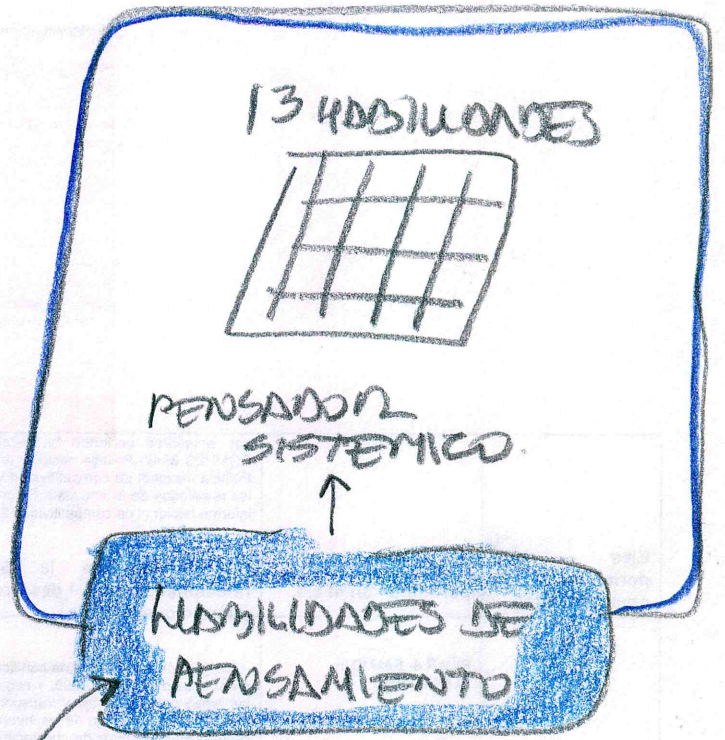 13 HABILIDADES
PENSADOR
SISTEMICO.
HABILIDADES DE
PENSAMIENTO